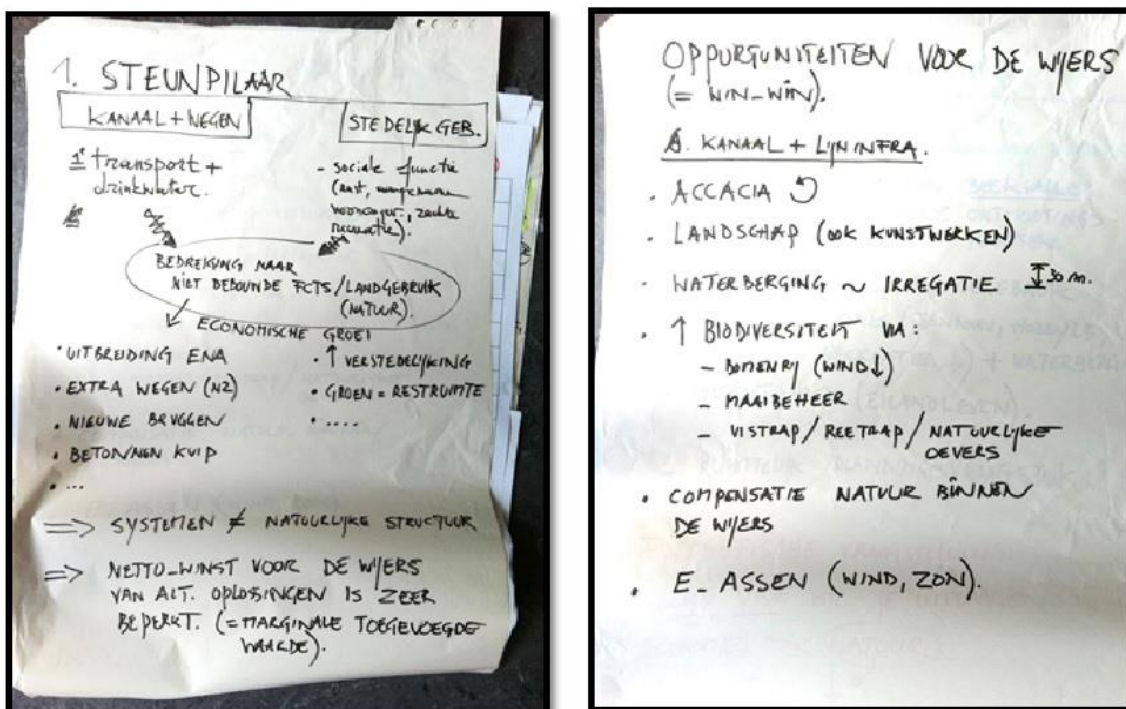 1. STEUNPILAAR
KANAAL + WEGEN
STEDELIJK GEB.
1° transport +
drinkwater.
- sociale functie
(rust, aangename
woonomgev., zachte
recreatie).
BEDREIGING NAAR
NIET BEBOUWDE FCTS/LANDGEBRUIK
(NATUUR).
ECONOMISCHE GROEI
• UITBREIDING ENA
• EXTRA WEGEN (NZ)
• NIEUWE BRUGGEN
• BETONNEN KUIP
• ...
• ↑ VERSTEDELIJKING
• GROEN = RESTRUIMTE
• ....
=> SYSTEMEN ≠ NATUURLIJKE STRUCTUUR
=> NETTO-WINST VOOR DE WIJERS
VAN ALT. OPLOSINGEN IS ZEER
BEPERKT. (= MARGINALE TOEGEVOEGDE
WAARDE).
OPPURTUNITEITEN VOOR DE WIJERS
(= WIN-WIN).
A. KANAAL + LIJNINFRA.
• ACCACIA
• LANDSCHAP (OOK KUNSTWERKEN)
• WATERBERGING ~ IRREGATIE 30 m.
• ↑ BIODIVERSITEIT VIA:
- BOMENRIJ (WIND↓)
- MAAIBEHEER
- VISTRAP/REETRAP/NATUURLIJKE
OEVERS
• COMPENSATIE NATUUR BINNEN
DE WIJERS
• E-ASSEN (WIND, ZON).